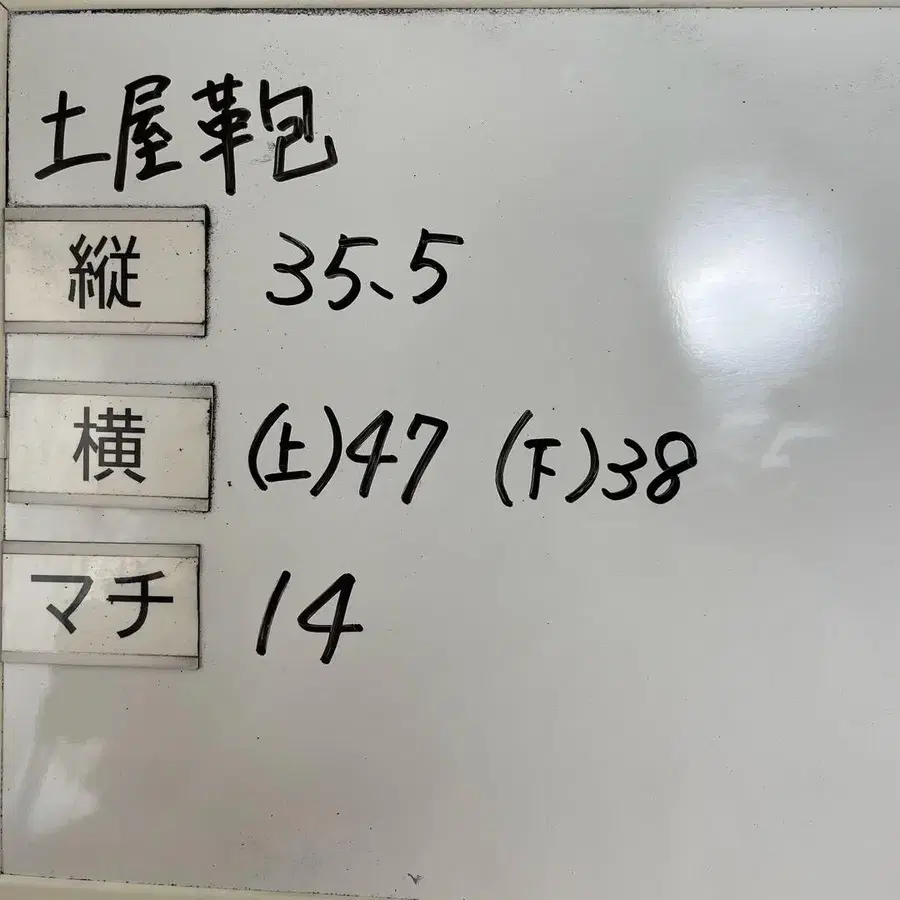 土屋鞄
縦 35.5
横 (上)47 (下)38
マチ 14